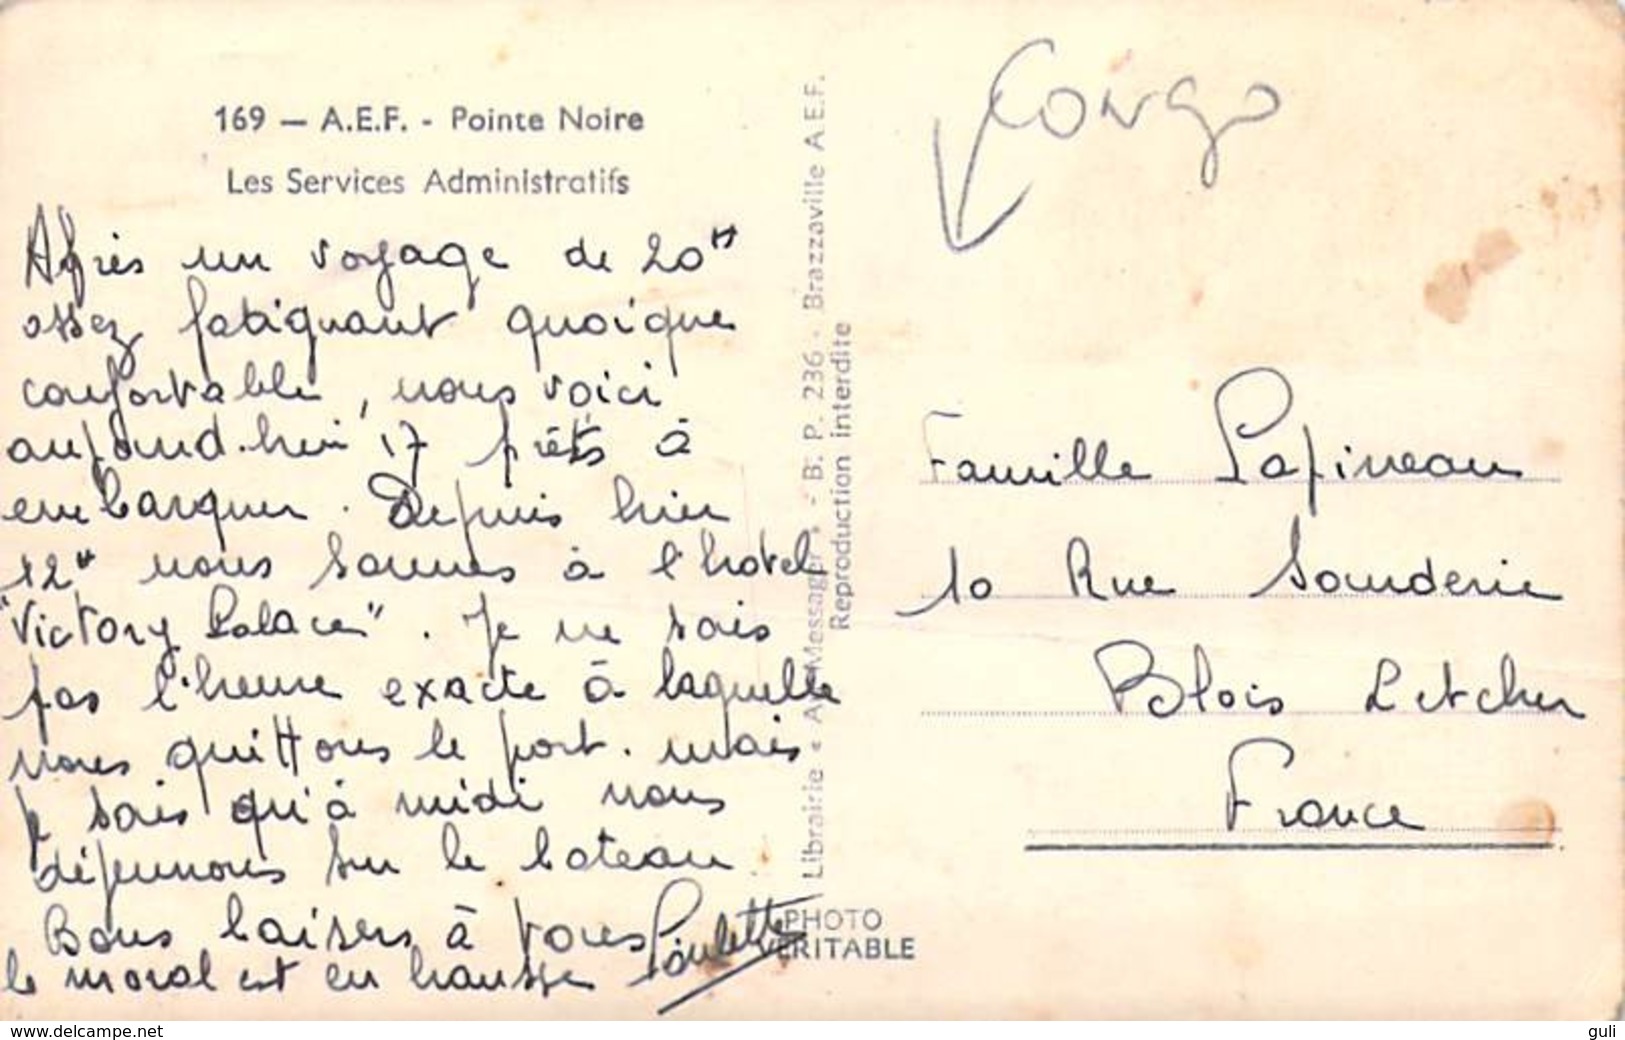 169 — A.E.F. - Pointe Noire
Les Services Administratifs
Après un voyage de 20H
assez fatiguant quoique
confortable, nous voici
aujourd'hui 17 prêts à
embarquer. Depuis hier
12H nous sommes à l'hotel
"Victory Palace". Je ne sais
pas l'heure exacte à laquelle
nous quittons le port. mais
je sais qu'à midi nous
déjeunons sur le bateau
Bons baisers à tous Paulette
le moral est en hausse
Librairie « Au Messager » - B. P. 236 - Brazzaville A.E.F.
Reproduction interdite
PHOTO
VERITABLE
Congo
Famille Papineau
10 Rue Souderie
Blois L et cher
France
www.delcampe.net
guli